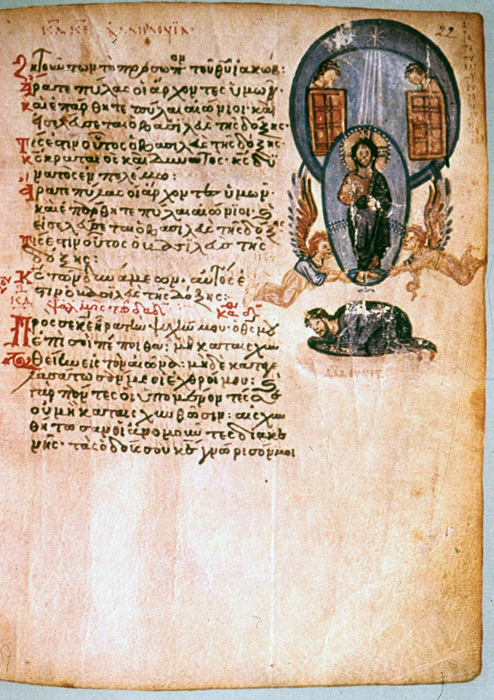 ζητούντων τὸ πρόσωπον τοῦ θυ ιακωβ:
Ἄρατε πύλας οἱ ἄρχοντες ὑμῶν·
καὶ ἐπάρθητε πύλαι αἰώνιοι· καὶ
εἰσελεύσεται ὁ βασιλεὺς τῆς δόξης·
Τίς ἐστιν οὗτος ὁ βασιλεὺς τῆς δόξης·
κς κραταιὸς καὶ δυνατός· κς δυ
νατὸς ἐν πολέμω:
Ἄρατε πύλας οἱ ἄρχοντες ὑμῶν·
καὶ ἐπάρθητε πύλαι αἰώνιοι· καὶ
εἰσελεύσεται ὁ βασιλεὺς τῆς δόξης
Τίς ἐστιν οὗτος ὁ βασιλεὺς τῆς
δόξης:
Κς τῶν δυνάμεων· αὐτὸς ἐ
στιν ὁ βασιλεὺς τῆς δόξης:
ΚΔ ψαλμὸς τῶ δαδ
Πρὸς σὲ κε ἦρα τὴν ψυχήν μου· ὁ θς μου
ἐπὶ σοὶ πέποιθα· μὴ καταισχυν
θείην εἰς τὸν αἰῶνα· μηδὲ καταγε
λασάτωσάν με οἱ ἐχθροί μου· καὶ
γὰρ πάντες οἱ ὑπομένοντές σε
οὐ μὴ καταισχυνθῶσιν: αἰσχυν
θήτωσαν οἱ ἀνομοῦντες διακε
νῆς· τὰς ὁδούς σου κε γνώρισόν μοι
22